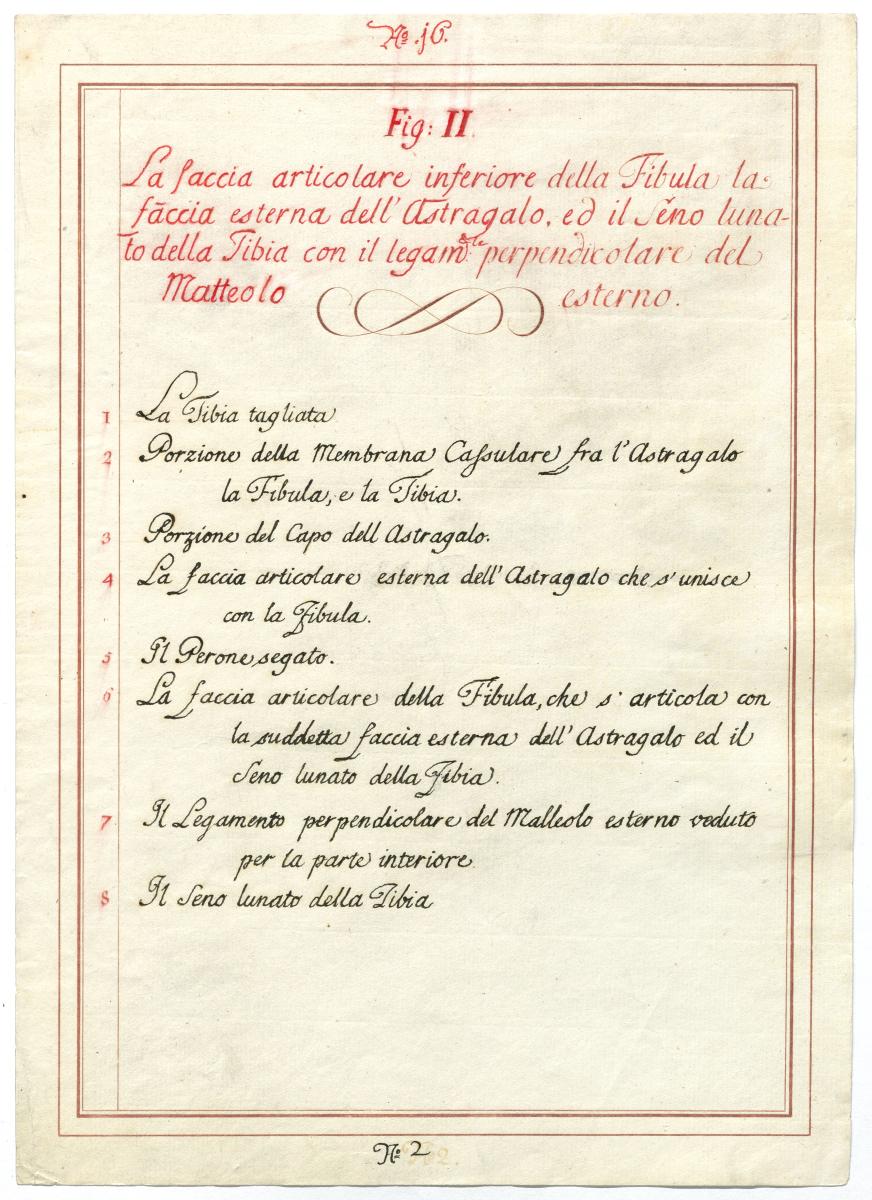 No. 16.
Fig: II.
La faccia articolare inferiore della Fibula la
faccia esterna dell' Astragalo, ed il Seno luna-
to della Tibia con il legam.te perpendicolare del
Matteolo esterno.
1 La Tibia tagliata
2 Porzione della Membrana Cassulare fra l'Astragalo
la Fibula, e la Tibia.
3 Porzione del Capo dell Astragalo.
4 La faccia articolare esterna dell' Astragalo che s'unisce
con la Fibula.
5 Il Perone segato.
6 La faccia articolare della Fibula, che s' articola con
la suddetta faccia esterna dell' Astragalo ed il
Seno lunato della Tibia.
7 Il Legamento perpendicolare del Malleolo esterno veduto
per la parte interiore
8 Il Seno lunato della Tibia
No. 2